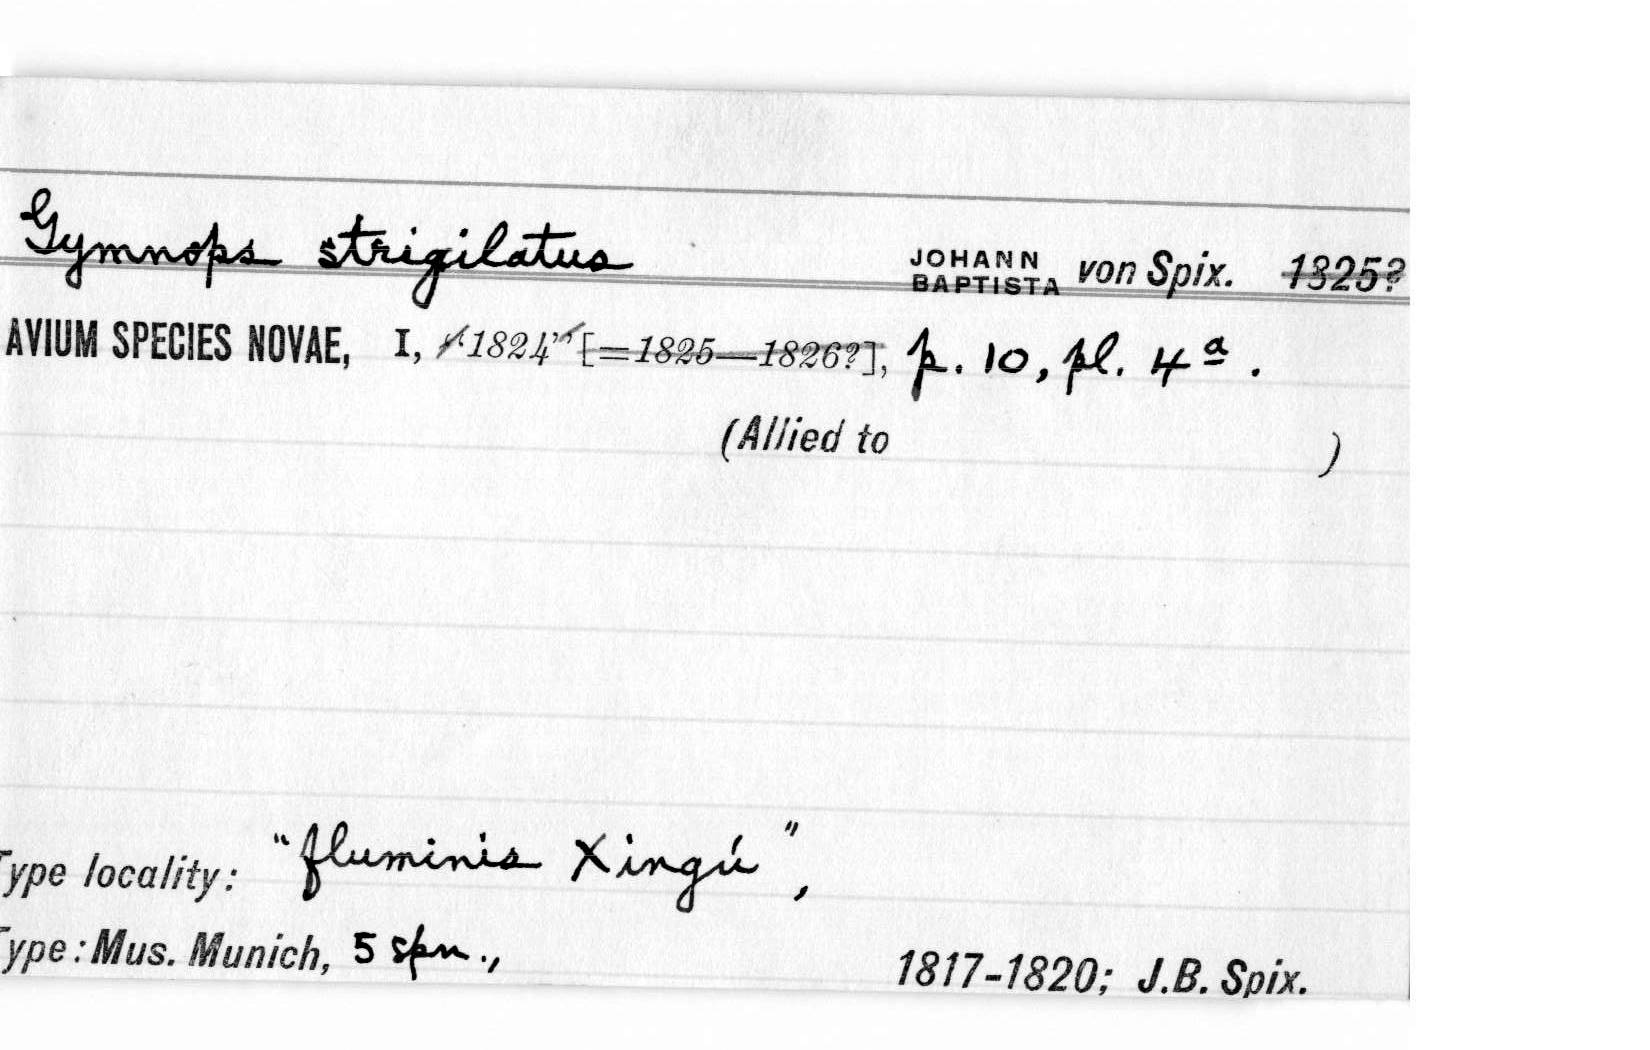 Gymnops strigilatus JOHANN BAPTISTA von Spix. 1825?
AVIUM SPECIES NOVAE, I, "1824" [=1825—1826?], p. 10, pl. 4ª.
(Allied to )
Type locality: "fluminis Xingú",
Type: Mus. Munich, 5 spm., 1817-1820; J.B. Spix.